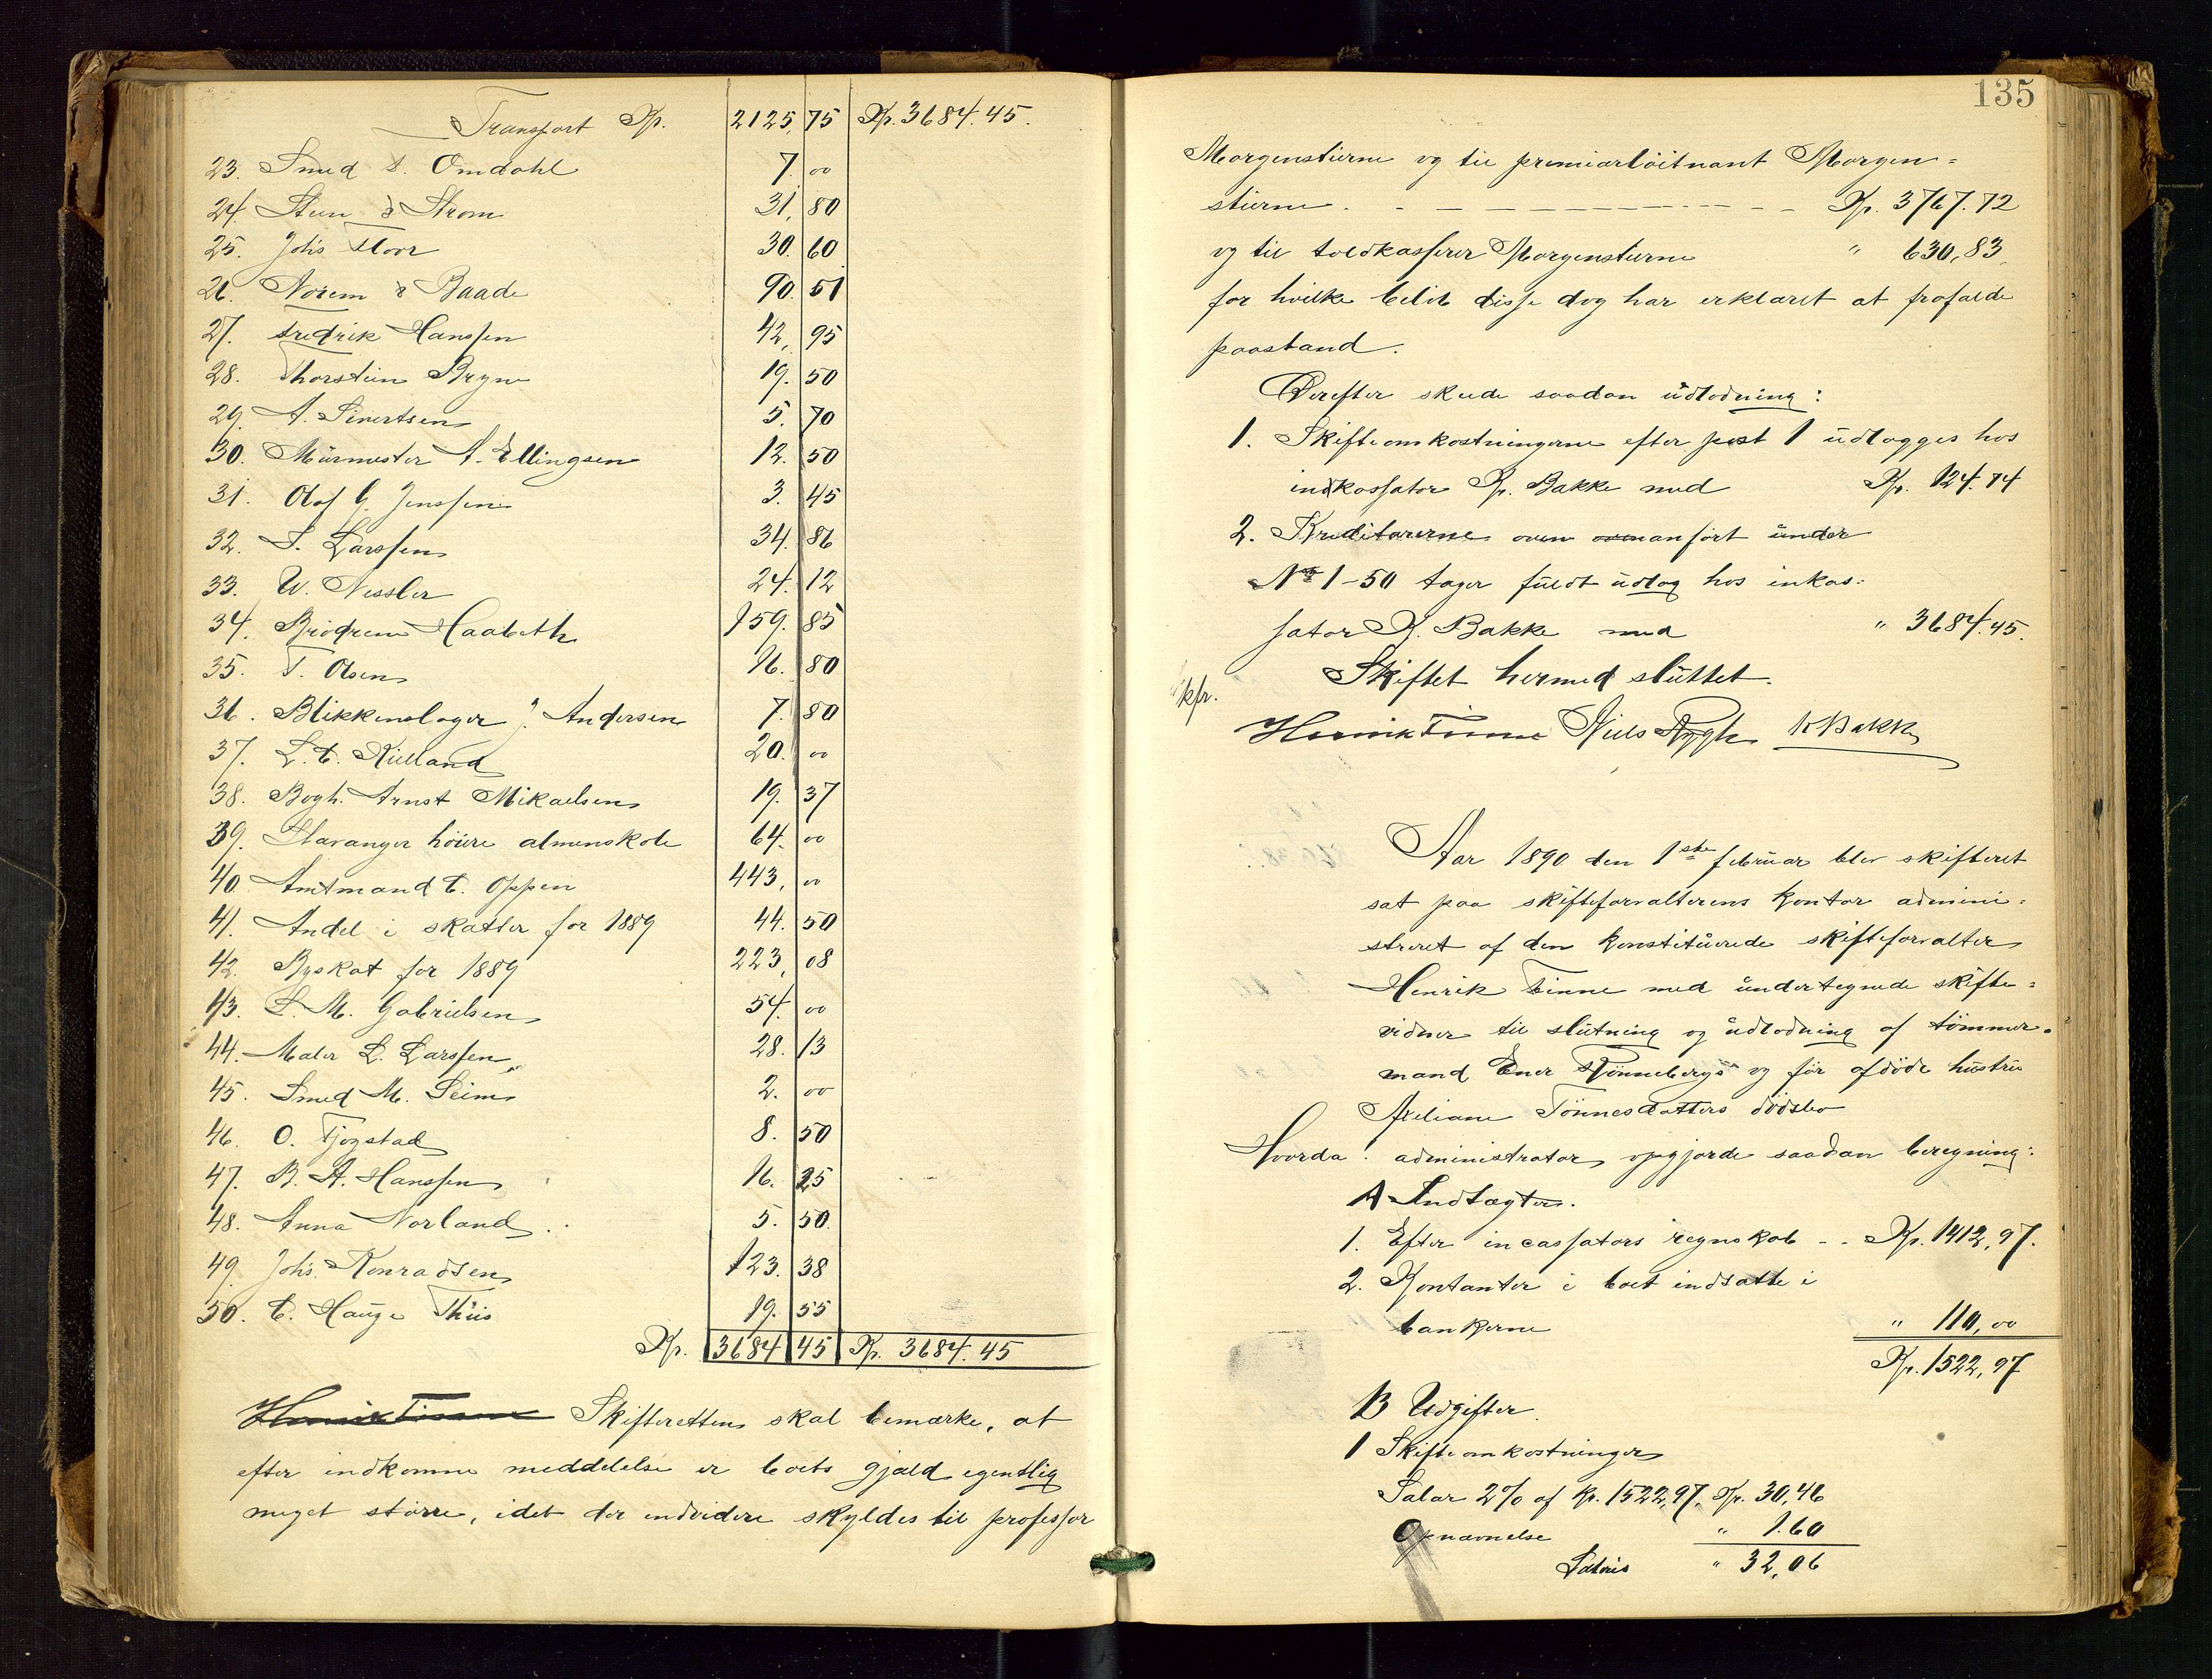 Transport Kr. 2125,75 Kr. 3684.45.
23. Smed S. Omdahl 7. 00
24. Steen & Strøm 31, 80
25. Johs Floor 30. 60
26. Norem & Baade 90. 51
27. Fredrik Hanssen 42, 95
28. Thorstein Bryne 19. 50
29. A. Sivertsen 5. 70
30. Mürmester A. Ellingsen 12. 50
31. Olaf G. Jenssen 3. 45
32. S. Larssen 34. 86
33. W. Nessler 24. 12
34. Brödrene Haabeth 159. 85
35. T. Olsen 16. 80
36. Blikkenslager J. Andersen 7. 80
37. L. C. Kielland 20. 00
38. Bogh. Arnst Mikaelsen 19. 37
39. Stavanger höiere almenskole 64. 00
40. Amtmand C. Oppen 443, 00
41. Andel i skatter for 1889 44. 50
42. Byskat for 1889 223, 08
43. L. M. Gabrielsen 54. 00
44. Maler L. Larssen 28. 13
45. Smed M. Seim 2. 00
46. O. Tjogstad 8. 50
47. B. A. Hanssen 16. 25
48. Anna Norland 5. 50
49. Johs. Konradsen 123. 38
50. C. Hauge Thiis 19. 55
Kr. 3684 45 Kr. 3684. 45
Henrik Finne Skifteretten skal bemærke, at
efter indkomne meddelelse er boets gjæld egentlig
meget större, idet der endvidere skyldes til professor
135
Morgenstierne og til premiærlöitnant Morgen=
stierne. Kr. 3767.72
og til toldkasserer Morgenstierne " 630,83
for hvilke belöb disse dog har erklæret at frafalde
paastand.
Derefter skede saadan üdlodning:
1. Skifteomkostningerne efter post 1 üdlægges hos
indkassator K. Bakke med Kr. 124.74
2. Kreditorerne oven oven anfört ünder
No 1-50 tager füldt üdlæg hos inkas=
sator K. Bakke med " 3684.45.
Skiftet hermed slüttet.
kfr.
Henrik Finne Niels Nygh K Bakke
Aar 1890 den 1ste februar blev skifteret
sat paa skifteforvalterens kontor admini=
streret af den konstitüerede skifteforvalter
Henrik Finne med ündertegnede skifte=
vidner til slütning og üdlodning af tömmer=
mand Ener Rönnebergs og för afdöde hüstrü
Axeliane Tönnesdatters dödsbo
Hvorda: administrator opgjorde saadan beregning:
A Indtægter.
1. Efter incassators regnskab -- Kr. 1412,97.
2. Kontanter i boet indsatte i
bankerne " 110,00
Kr. 1522,97
B Udgifter.
1 Skifteomkostninger
Salær 2% af kr. 1522,97. Kr. 30,46
Opnævnelse " 1.60
Lateris " 32,06